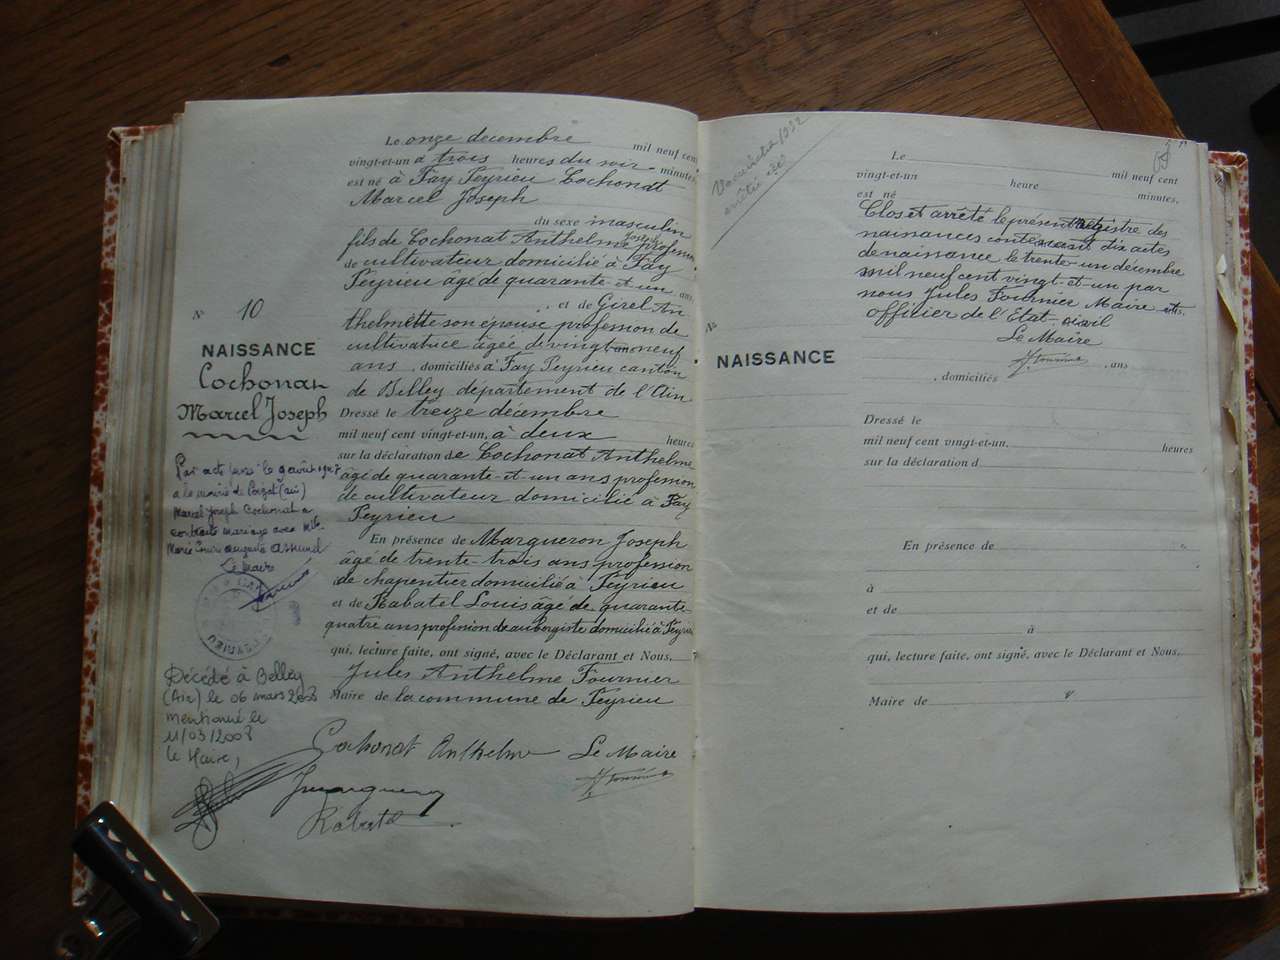 Le onze décembre mil neuf cent
vingt-et-un à trois heures du soir minutes,
est né à Fay Peyrieu Cochonat
Marcel Joseph
du sexe masculin
fils de Cochonat Anthelme Joseph profession
de cultivateur domicilié à Fay
Peyrieu âgé de quarante-et-un ans
, et de Girel An-
thelmette son épouse profession de
cultivatrice âgée de vingt neuf
ans , domiciliés à Fay Peyrieu canton
de Belley département de l'Ain
Dressé le treize décembre
mil neuf cent vingt-et-un, à deux heures
sur la déclaration de Cochonat Anthelme
âgé de quarante-et-un ans profession
de cultivateur domicilié à Fay
Peyrieu
En présence de Margueron Joseph
âgé de trente-trois ans profession
de chapentier domicilié à Peyrieu
et de Rabatel Louis âgé de quarante-
quatre ans profession de aubergiste domicilié à Peyrieu
qui, lecture faite, ont signé, avec le Déclarant et Nous,
Jules Anthelme Fournier
Maire de la commune de Peyrieu
Cochonat Anthelme Le Maire
J. Fournier
Jmargueron
Rabatel
N° 10
NAISSANCE
Cochonat
Marcel Joseph
Par acte le 9 avril
a la mairie de Poizat (ain)
Marcel Joseph Cochonat a
contracté mariage avec Mlle
Marie Louise Augusta
Le Maire
Décédé à Belley
(Ain) le 06 mars 2008
mentionné le
11/03/2008
Le Maire,
Le mil neuf cent
vingt-et-un heure minutes,
est né
Clos et arrêté le présent registre des
naissances contenant dix actes
de naissance le trente-un décembre
mil neuf cent vingt-et-un par
nous Jules Fournier Maire
officier de l'Etat-civil
Le Maire
J. Fournier , ans
, domiciliés
N°
NAISSANCE
Dressé le
mil neuf cent vingt-et-un, heures
sur la déclaration d
En présence de
à
et de
à
qui, lecture faite, ont signé, avec le Déclarant et Nous,
Maire de